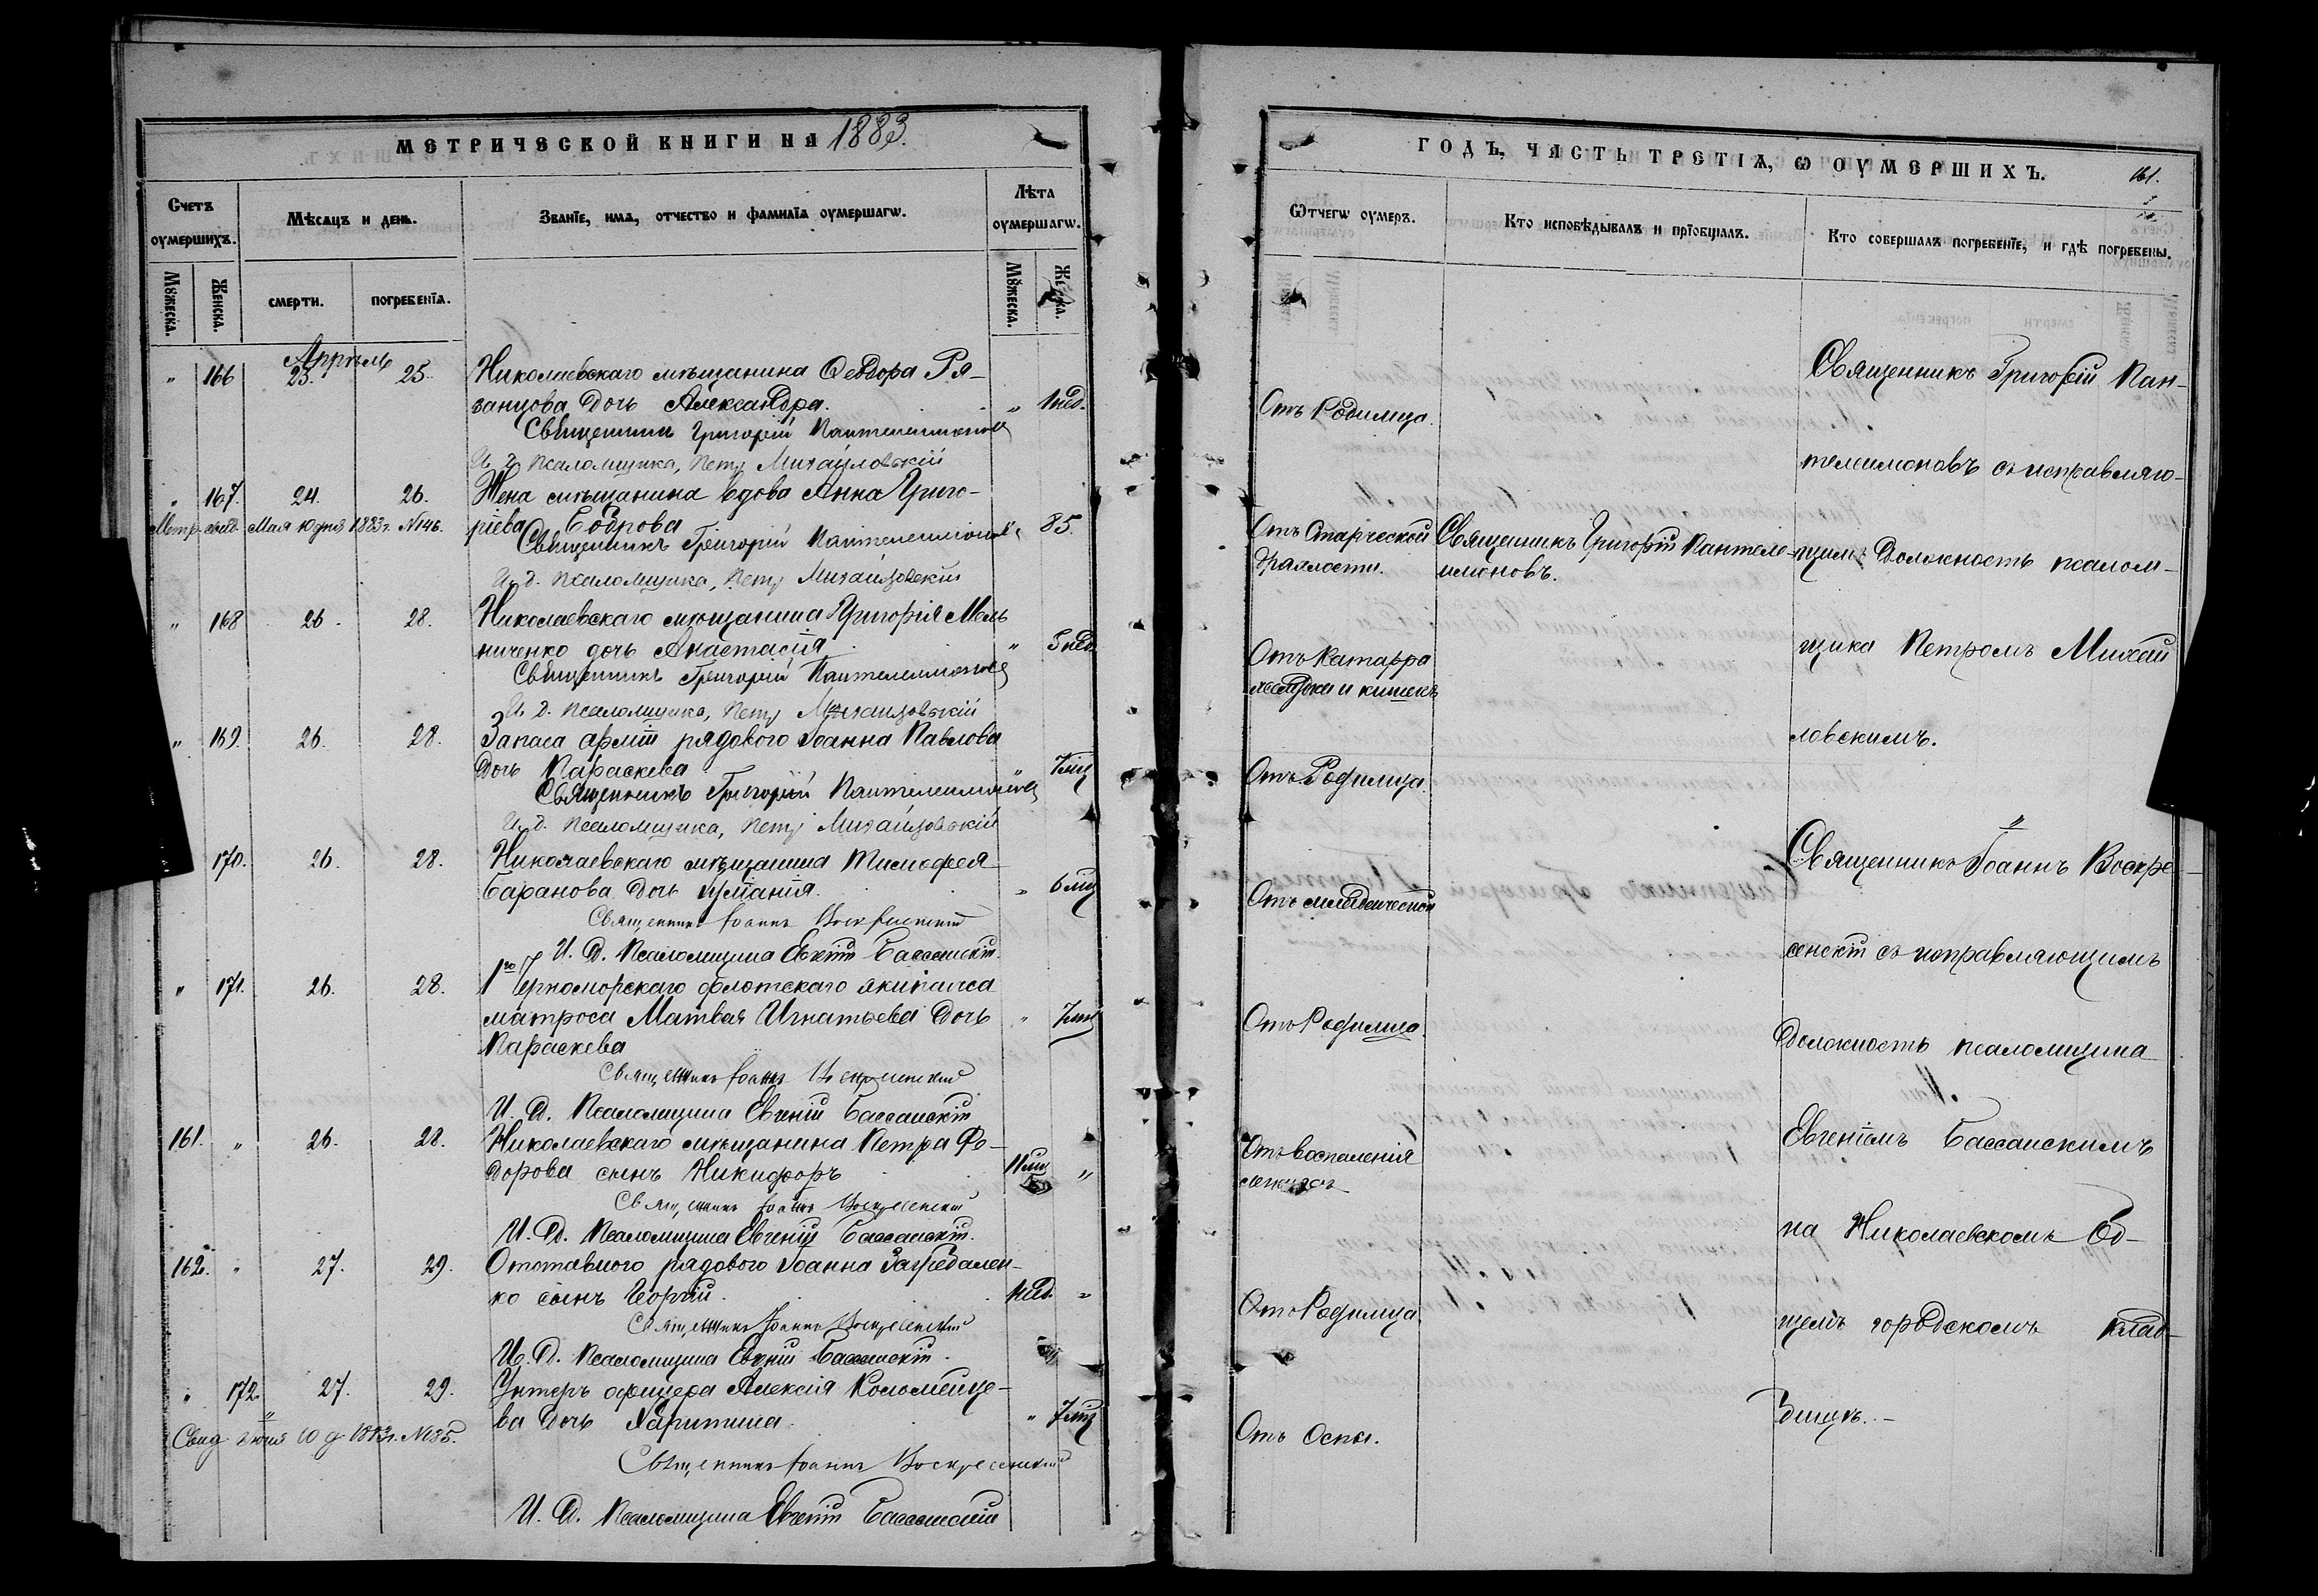 МЕТРИЧЕСКОЙ КНИГИ НА 1883.
Счетъ оумершихъ.
Мѣсяцъ и день.
Званїе, имя, отчество и фамилїя оумершагѡ.
Лѣта оумершагѡ.
Мужеска.
Женска.
смерти.
погребенїя.
Мужеска.
Женска.
Аппрѣль
" 166 23. 25. Николаевскаго мѣщанина Ѳеодора Ря-
занцова дочь Александра. " 1 нед.
Священникъ Григорій Пантелеимоновъ
И. д. Псаломщика, Петръ Михайловскій
" 167. 24. 26. Жена мѣщанина вдова Анна Григо-
Метр. свид. Мая 10 дня 1883 г. №146. ріева Боброва " 85.
Священникъ Григорій Пантелеимоновъ
И. д. Псаломщика, Петръ Михайловскій
" 168 26. 28. Николаевскаго мѣщанина Григорія Мель
ниченко дочь Анастасія " 5 нед.
Священникъ Григорій Пантелеимоновъ
И. д. Псаломщика, Петръ Михайловскій
" 169. 26. 28. Запаса арміи рядового Іоанна Павлова
дочь Параскева 7 мц
Священникъ Григорій Пантелеимоновъ
И. д. Псаломщика, Петръ Михайловскій
170. 26. 28. Николаевскаго мѣщанина Тимофея
Баранова дочь " 6 мц
Священникъ Іоаннъ Воскресенскій
И. д. Псаломщика Евгеній Бассанскій.
" 171. 26. 28. 1го Черноморскаго флотскаго экипажа
матроса Матвея Игнатьева дочь " 7 мц
Параскева
Священникъ Іоаннъ Воскресенскій
И. д. Псаломщика Евгеній Бассанскій
161. " 26. 28. Николаевскаго мѣщанина Петра Фе-
дорова сынъ Никифоръ 11 мц "
Священникъ Іоаннъ Воскресенскій
И. д. Псаломщика Евгеній Бассанскій.
162. " 27. 29. Отставного рядового Іоанна
ко сынъ Георгій. "
Священникъ Іоаннъ Воскресенскій
И. д. Псаломщика Евгеній Бассанскій.
" 172. 27. 29. Унтеръ офицера Алексія Коломейце-
Свид. Іюня 10 д 1883 г. №185. ва дочь Харитина. " 7 мц
Священникъ Іоаннъ Воскресенскій
И. д. Псаломщика Евгеній Бассанскій
ГОДЪ, ЧАСТЬ ТРЕТІЯ, Ѡ ОУМЕРШИХЪ.
161.
Ѿтчегѡ оумеръ.
Кто исповѣдывалъ и прїобщалъ.
Кто совершалъ погребенїе, и гдѣ погребены.
Отъ Родимца.
Отъ Старческой
дряхлости.
Отъ Катарра
желудка и кишекъ
Отъ Родимца.
Отъ младенческой
Отъ Родимца.
Отъ воспаленія
легкихъ
Отъ Родимца
Отъ Оспы.
Священникъ Григорій Пантеле-
имоновъ.
Священникъ Григорій Пан-
телеимоновъ съ исправляю-
щимъ Должность псалом-
щика Петромъ Михай
ловскимъ.
Священникъ Іоаннъ Воскре-
сенскій съ исправляющимъ
Должность псаломщика
Евгеніемъ Бассанскимъ
на Николаевскомъ Об-
щемъ городскомъ Клад-
бищѣ.